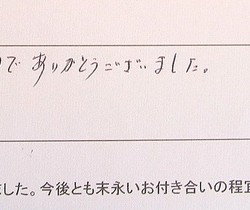 で ありがとうございました。
ました。今後とも末永いお付き合いの程宜